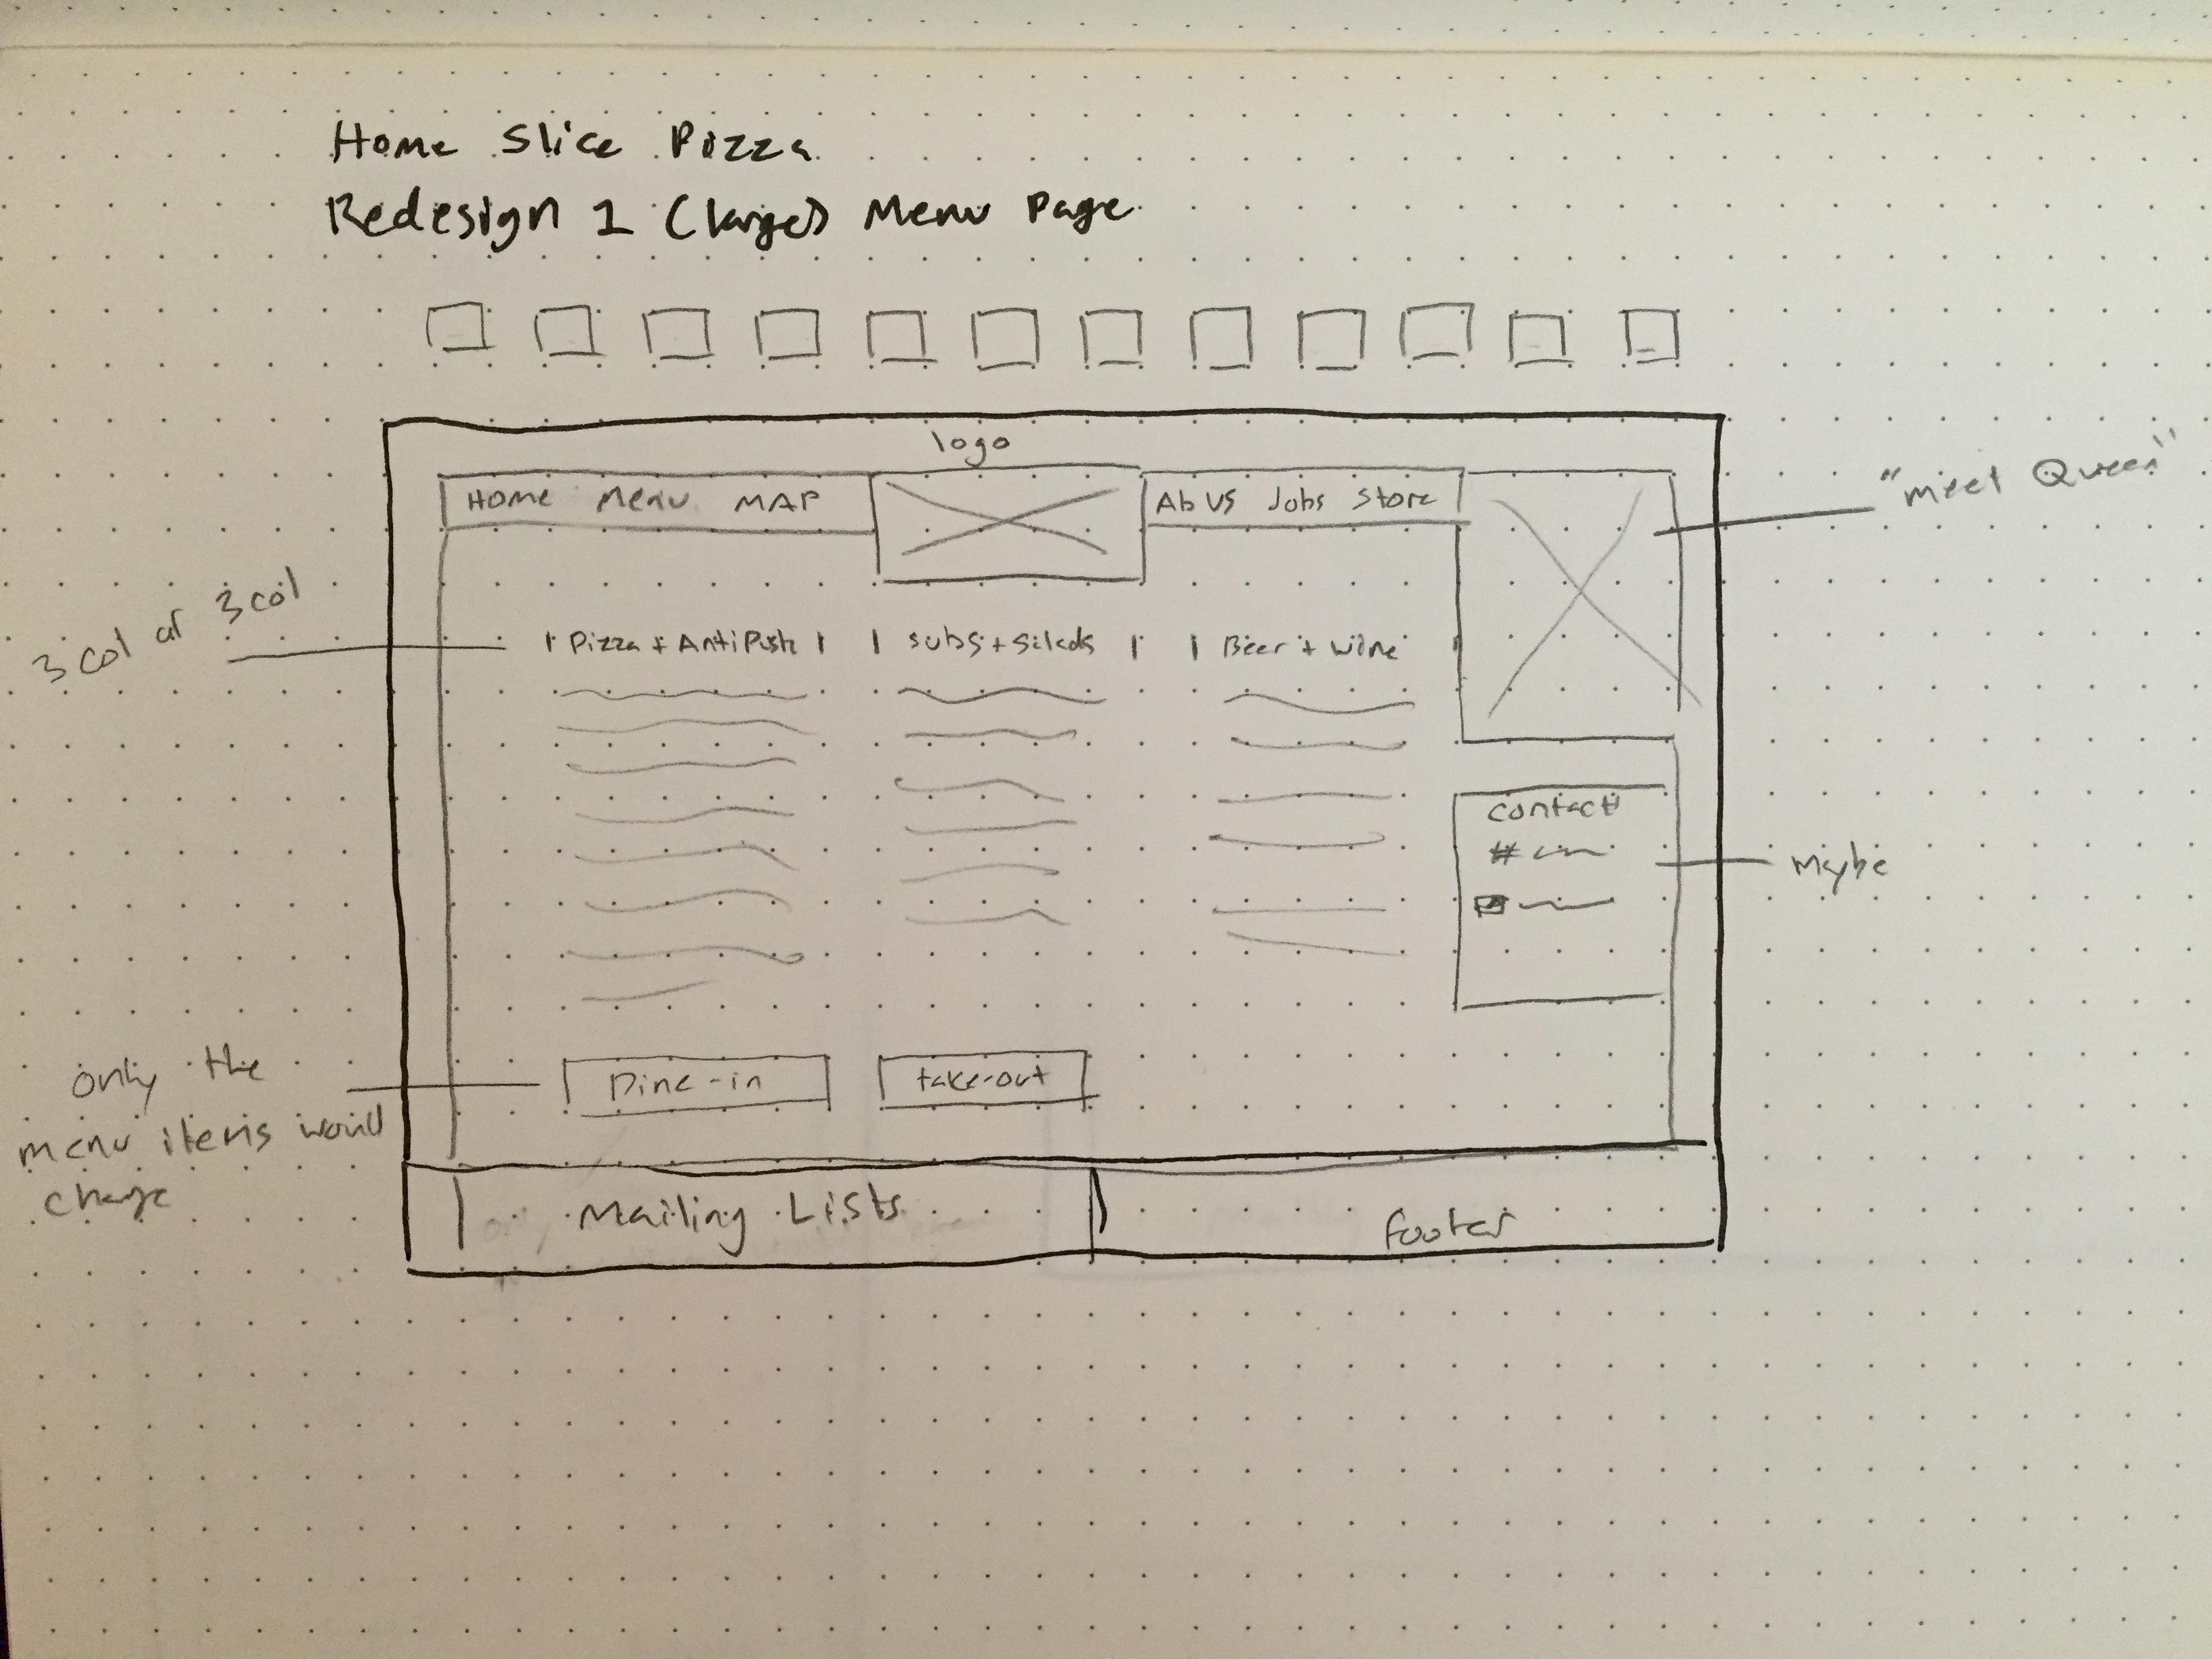 Home Slice Pizza
Redesign 1 (large) Menu Page
logo
Home Menu MAP
Ab US Jobs Store
"meet Queen"
3 col of 3 col
Pizza + AntiPasti
subs + salads
Beer + wine
contact
#
Maybe
only the
menu items would
change
Dine-in
take-out
Mailing Lists
footer